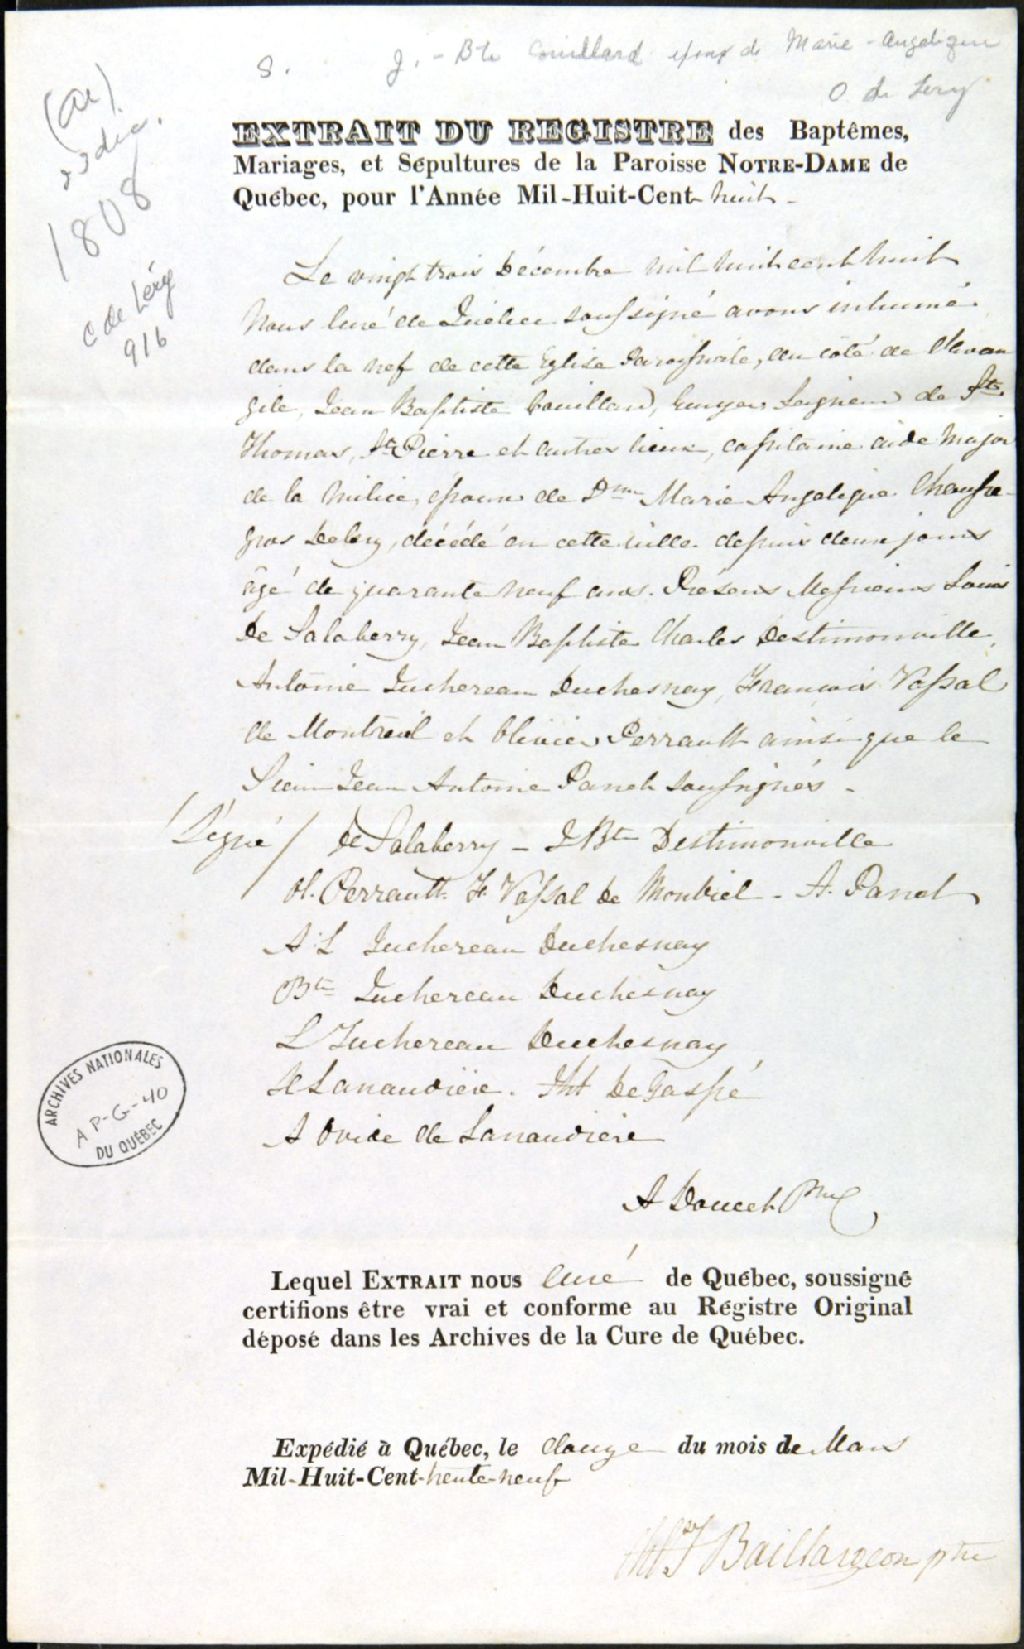 S. J. - Bte Couillard époux de Marie-Angélique
C de Léry
(Ac).
23 déc.
1808
C de Léry
916
EXTRAIT DU REGISTRE des Baptêmes,
Mariages, et Sépultures de la Paroisse NOTRE-DAME de
Québec, pour l'Année Mil-Huit-Cent huit -
Le vingt trois Décembre mil huit cent huit
Nous Curé de Québec soussigné avons inhumé
dans la nef de cette Eglise Paroissiale, du côté de l'Evan
gile, Jean Baptiste Couillard, Ecuyer Seigneur de St
Thomas, St Pierre et autres lieux, capitaine aide Major
de la Milice, époux de Dme Marie Angelique Chausse
gros Delery, décédé en cette ville depuis deux jours
âgé de quarante neuf ans. Présens Messieurs Louis
De Salaberry, Jean Baptiste Charles Destimonville,
Antoine Juchereau Duchesnay, François Vassal
de Montviel et Olivier Perrault ainsi que le
Sieur Jean Antoine Panet soussignés -
(Signé) De Salaberry - J Bte Destimonville
Ol. Perrault. F. Vassal de Montviel - A. Panet
A L Juchereau Duchesnay
Bte Juchereau Duchesnay
L Juchereau Duchesnay
Lanaudière. DeGaspé
A Ovide de Lanaudière
A Doucet Ptre
ARCHIVES NATIONALES
A P-G-40
DU QUÉBEC
Lequel EXTRAIT nous Curé de Québec, soussigné
certifions être vrai et conforme au Régistre Original
déposé dans les Archives de la Cure de Québec.
Expédié à Québec, le douze du mois de Mars
Mil-Huit-Cent-trente-neuf
Baillargeon ptre